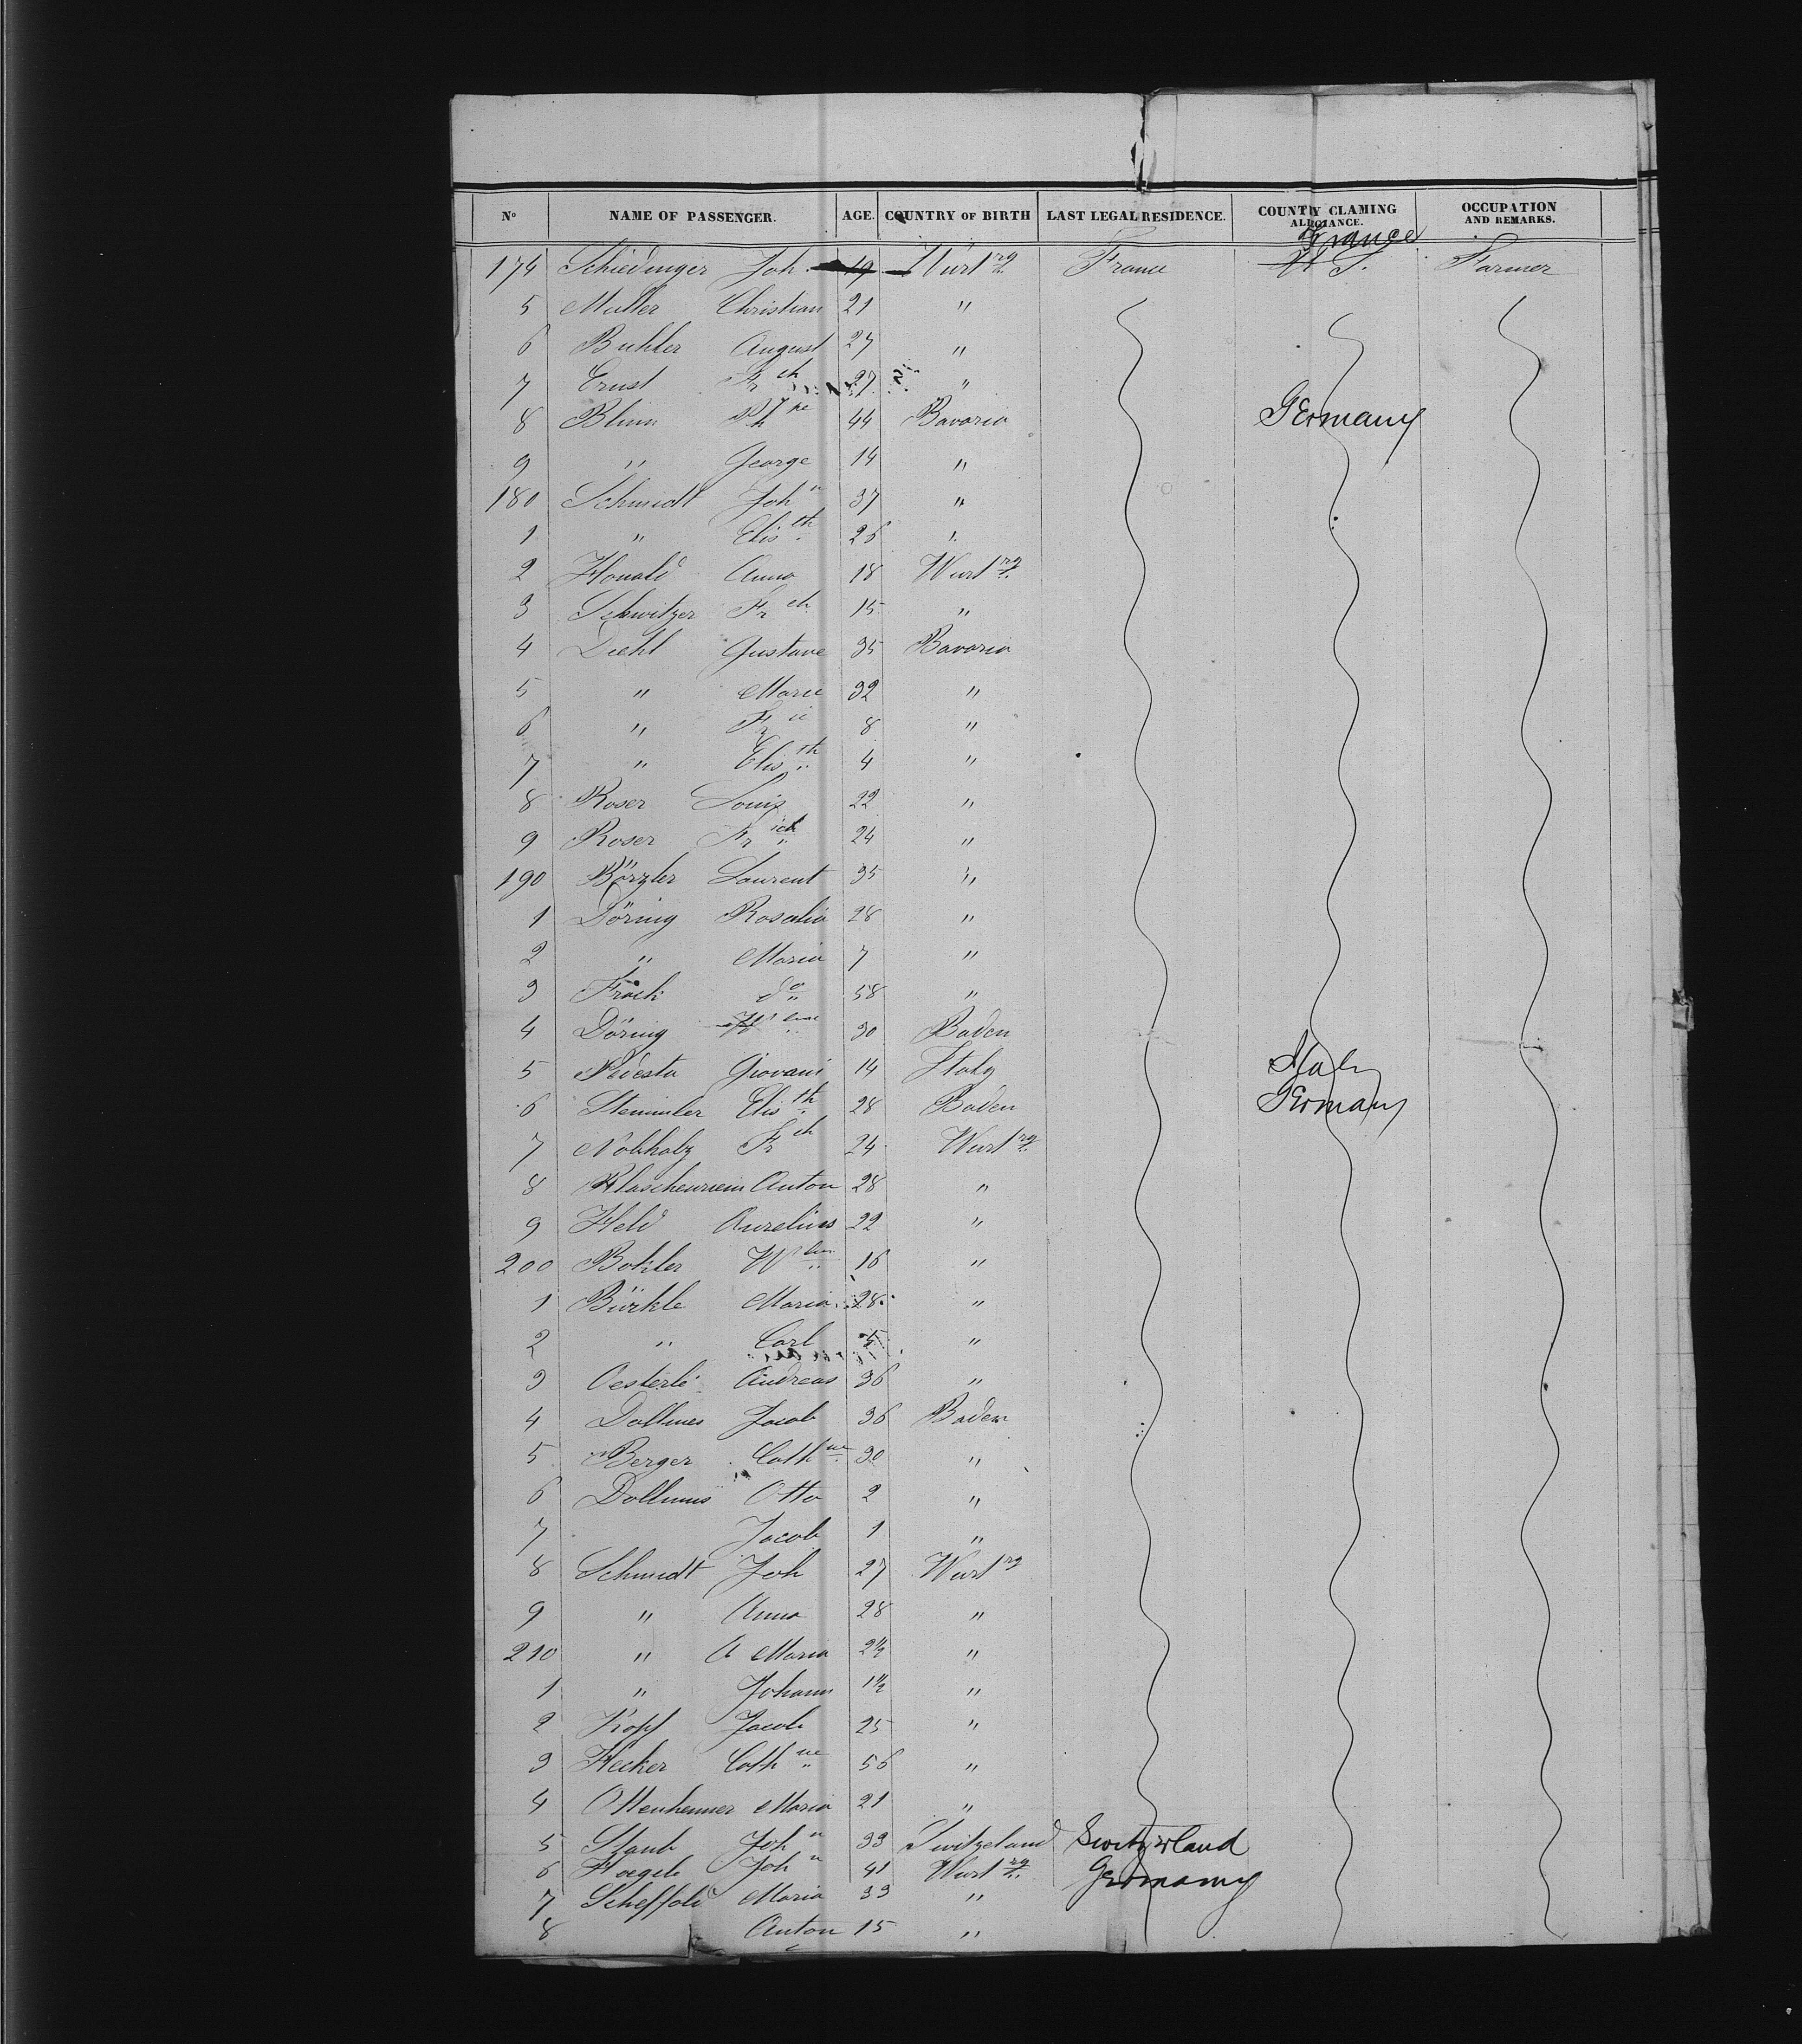 No NAME OF PASSENGER. AGE. COUNTRY OF BIRTH LAST LEGAL RESIDENCE. COUNTY CLAMING ALLGIANCE. OCCUPATION AND REMARKS.
France
174 Schiedinger Joh. 19 Wurtrg France U S. Farmer
5 Muller Christian 21 "
6 Buhler August 27 "
7 Ernst Frch 27 "
8 Blum 44 Bavaria Germany
9 " George 14 "
180 Schmidt John 37 "
1 " Elisth 26 "
2 Honald Anna 18 Wurtrg
3 Schwitzer Frch 15 "
4 Diehl Gustave 35 Bavaria
5 " Marie 32 "
6 " 8 "
7 " Elisth 4 "
8 Roser Louis 22 "
9 Roser Frich 24 "
190 Börzler Laurent 35 "
1 Döring Rosalia 28 "
2 " Maria 7 "
3 do 58 "
4 Döring 30 Baden
5 Podesta Giovani 14 Italy Italy
6 Stemmler Elisth 28 Baden Germany
7 Nobholz Frch 24 Wurtrg
8 Anton 28 "
9 Held Aurelius 22 "
200 Bohler Whlm 16 "
1 Bürkle Maria 28 "
2 " Carl "
3 Oesterle Andreas 36 "
4 Jacob 36 Baden
5 Berger Cathne 30 "
6 Otto 2 "
7 Jacob 1 "
8 Schmidt Joh 27 Wurtrg
9 " Anna 28 "
210 " A Maria 2 1/2 "
1 " Johann 1 1/2 "
2 Kopf Jacob 25 "
3 Hecker Cathne 56 "
4 Ottenheimer Maria 21 "
5 Staub John 33 Switzeland Switzerland
6 Haegele John 41 Wurtrg Germany
7 Scheffold Maria 33 "
8 Anton 15 "